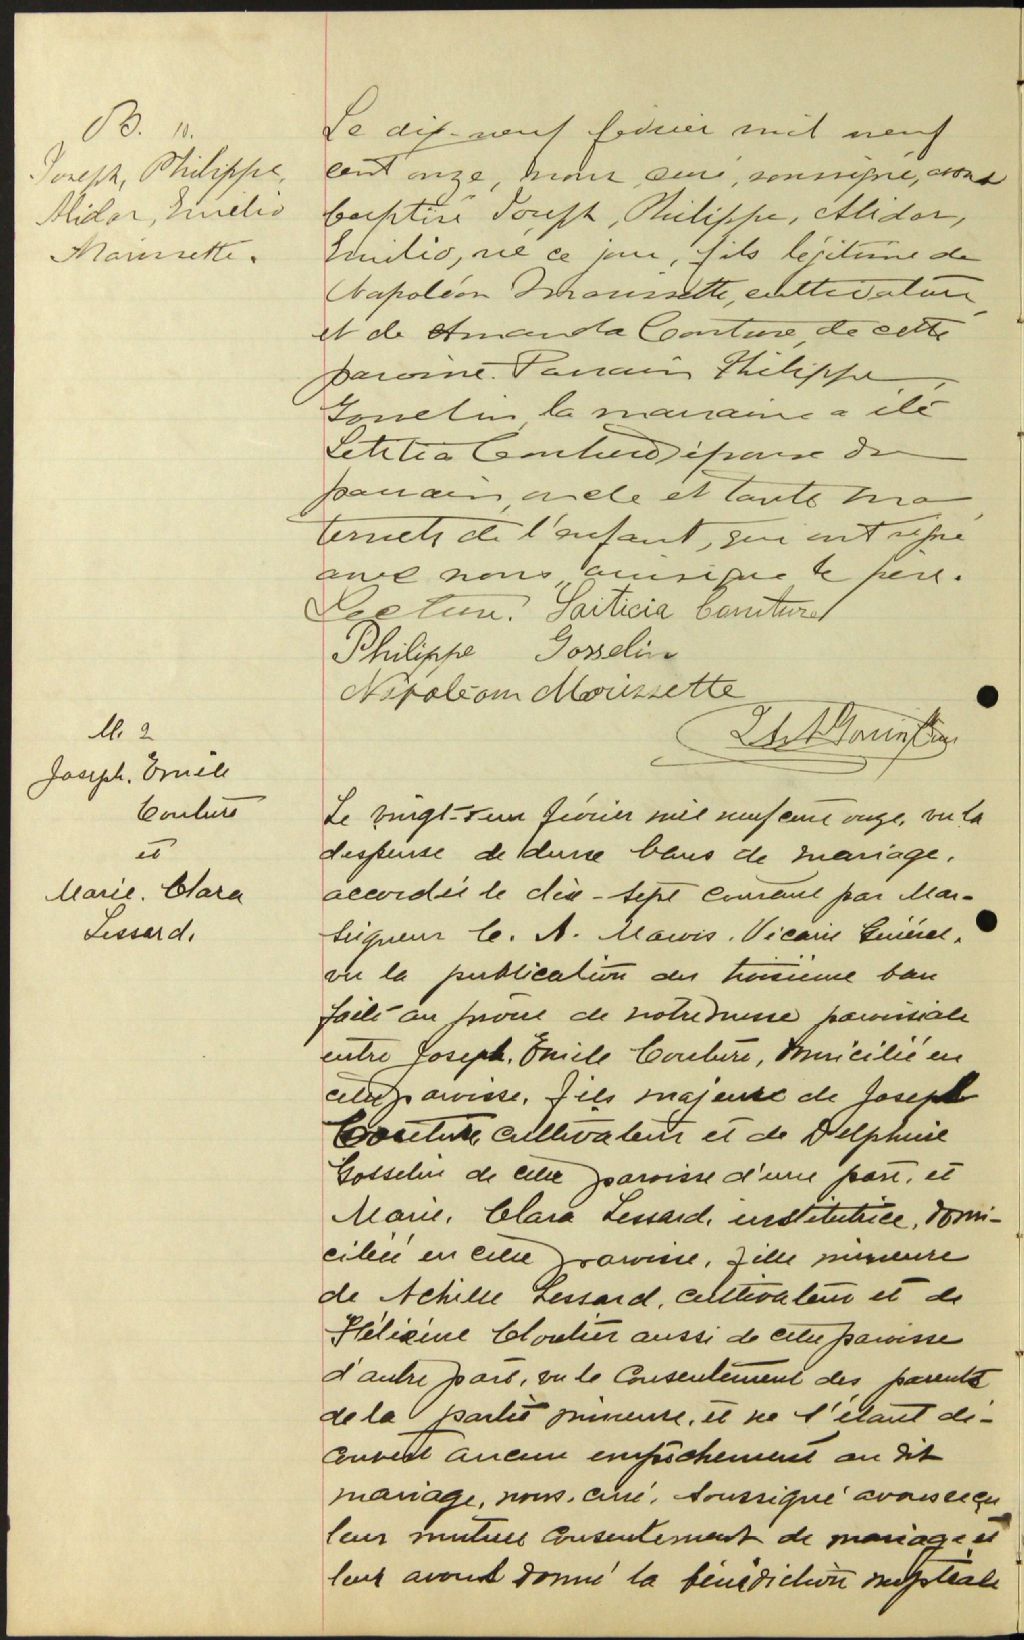 B. 10.
Joseph, Philippe,
Alidor, Emilio
Morissette.
Le dix-neuf février mil neuf
cent onze, nous curé, soussigné, avons
baptisé Joseph, Philippe, Alidor,
Emilio, né ce jour, fils légitime de
Napoléon Morissette, cultivateur,
et de Amanda Couture, de cette
paroisse. Parrain Philippe
Gosselin, la marraine a été
Letitia Couture, épouse du
parrain, oncle et tante ma
ternels de l'enfant, qui ont signé
avec nous, ainsi que le père.
Lecture. Laiticia Couture
Philippe Gosselin
Napoléon Morissette
M. 2
Joseph. Emile
Couture
et
Marie. Clara
Lessard.
Le vingt-et-un février mil neuf cent onze, vu la
dispense de deux bans de mariage,
accordée le dix-sept courant par Mon-
seigneur C. A. Marois, Vicaire Général,
vu la publication du troisième ban
faite au prône de notre messe paroissiale
entre Joseph. Emile Couture, domicilié en
cette paroisse, fils majeur de Joseph
Couture, cultivateur et de Delphine
Gosselin de cette paroisse d'une part, et
Marie. Clara Lessard, institutrice, domi-
ciliée en cette paroisse, fille mineure
de Achille Lessard, cultivateur et de
Cloutier aussi de cette paroisse
d'autre part, vu le consentement des parents
de la partie mineure, et ne s'étant dé-
couvert aucun empêchement au dit
mariage, nous, curé, soussigné avons reçu
leur mutuel consentement de mariage et
leur avons donné la bénédiction nuptiale